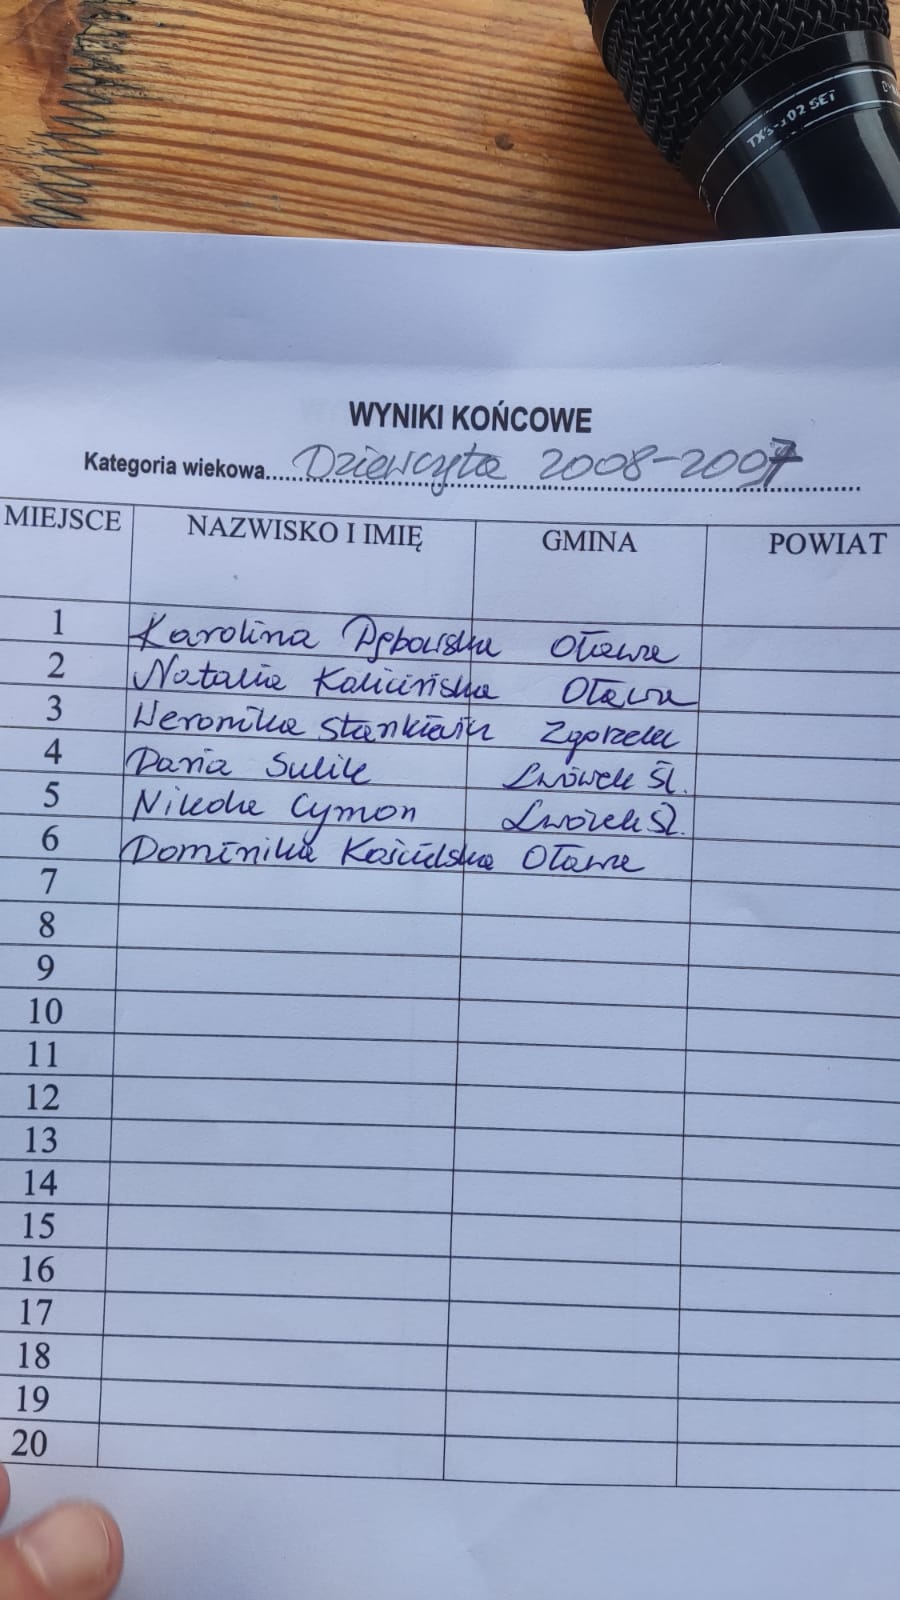 TXS-102 SET
WYNIKI KOŃCOWE
Kategoria wiekowa.....Dziewczęta 2008-2007
MIEJSCE NAZWISKO I IMIĘ GMINA POWIAT
1 Karolina Dębowska Oława
2 Natalia Kalicińska Oława
3 Weronika Stankiewicz Zgorzelec
4 Daria Sulik Lwówek Śl.
5 Nikola Cymon Lwówek Śl.
6 Dominika Kościelska Oława
7
8
9
10
11
12
13
14
15
16
17
18
19
20